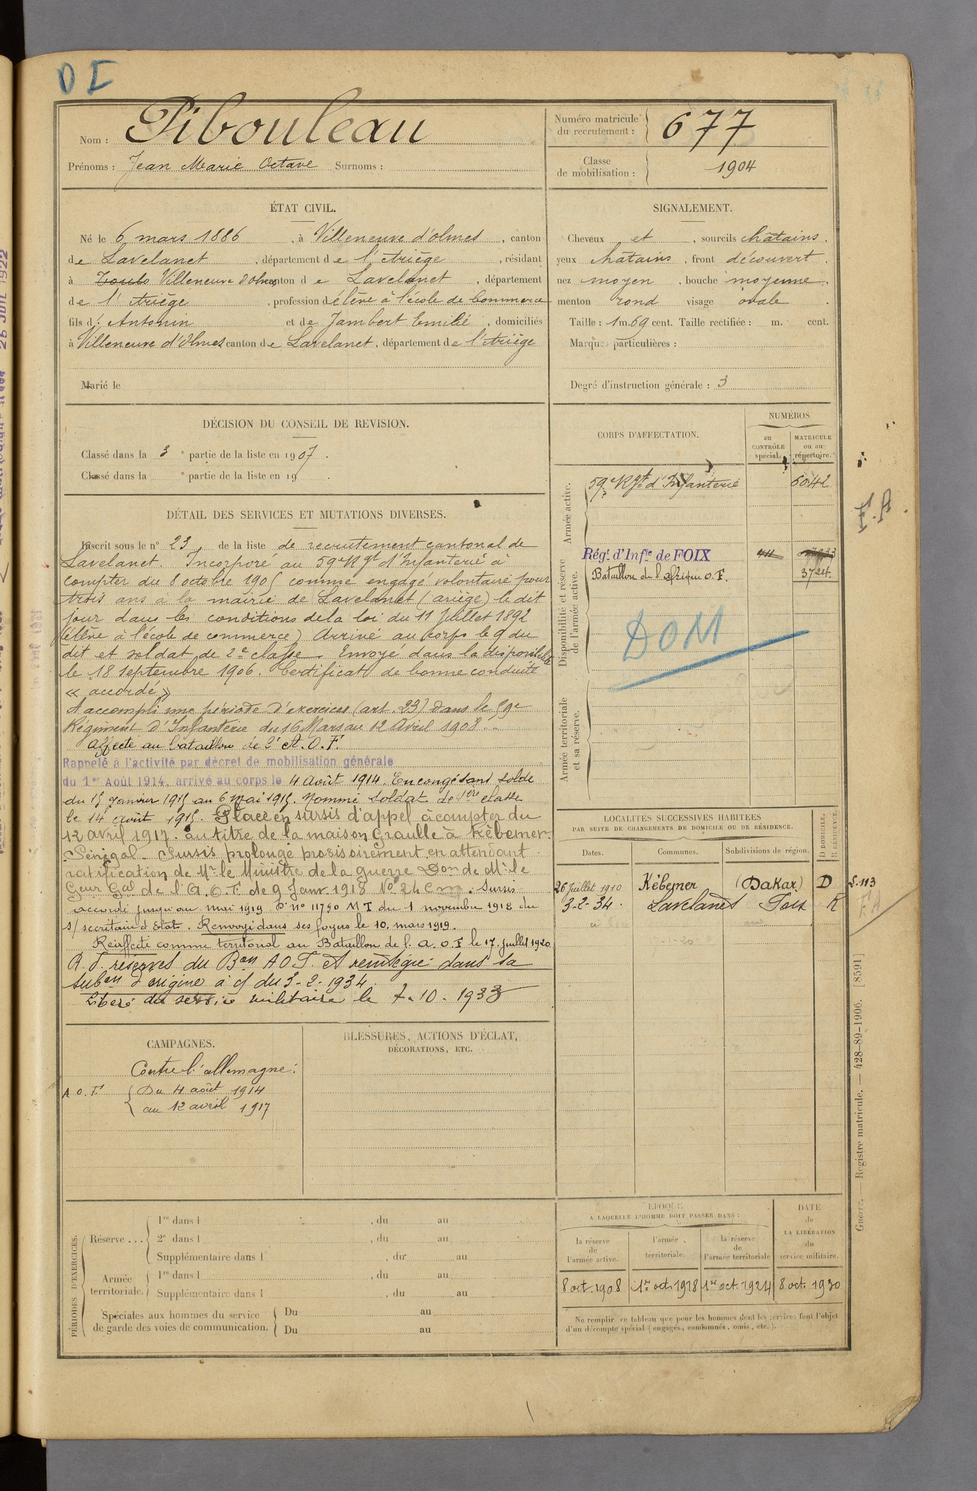 D I
Nom : Pibouleau
Prénoms : Jean Marie Octave Surnoms :
Numéro matricule du recrutement : 677
Classe de mobilisation : 1904
ÉTAT CIVIL.
Né le 6 mars 1886, à Villeneuve d'olmes, canton
de Lavelanet, département de l'Ariège, résidant
à Villeneuve d'Olmes canton de Lavelanet, département
de l'Ariège, profession d'élève à l'école de Commerce
fils d' Antonin et de Jambert Emilie, domiciliés
à Villeneuve d'Olmes canton de Lavelanet, département de l'Ariège
Marié le
SIGNALEMENT.
Cheveux et, sourcils châtains.
yeux châtains, front découvert
nez moyen, bouche moyenne
menton rond visage ovale
Taille : 1 m. 69 cent. Taille rectifiée : m. cent.
Marques particulières :
Degré d'instruction générale : 3
DÉCISION DU CONSEIL DE REVISION.
Classé dans la 3e partie de la liste en 1907.
Classé dans la e partie de la liste en 19
DÉTAIL DES SERVICES ET MUTATIONS DIVERSES.
Inscrit sous le n° 23 de la liste de recrutement cantonal de
Lavelanet. Incorporé au 59e Rgt d'Infanterie à
compter du 8 octobre 1905 comme engagé volontaire pour
trois ans à la mairie de Lavelanet (ariège) le dit
jour dans les conditions de la loi du 11 Juillet 1892
(élève à l'école de commerce) Arrivé au corps le 9 du
dit et soldat de 2e classe. Envoyé dans la disponibilité
le 18 septembre 1906. Certificat de bonne conduite
« accordé »
A accompli une période d'exercices (art. 23) dans le 59e
Régiment d'Infanterie du 16 Mars au 12 Avril 1908.
Affecté au bataillon de l'A.O.F.
Rappelé à l'activité par décret de mobilisation générale
du 1er Août 1914, arrivé au corps le 4 août 1914. En congé sans solde
du 15 Janvier 1915 au 6 mai 1915. Nommé soldat de 1ère classe
le 14 août 1915. Placé en sursis d'appel à compter du
12 avril 1917. au titre de la maison Graulle à Kébemer.
Sénégal. Sursis prolongé provisoirement en attendant
ratification de Mr le Ministre de la guerre Don de Mr le
Gour Gal de l'A.O.F. de 9 Janv. 1918 N° 24 C m. Sursis
accordé jusqu'au mai 1919 D. n° 11790 M T du 1 novembre 1918 du
s/ secrétaire d'Etat. Renvoyé dans ses foyers le 10, mars 1919.
Réaffecté comme territorial au Bataillon de l'A.O.F. le 17 juillet 1920
réserves du Bon A O F. et réintégré dans sa
subon d'origine à c/ du 3-2-1934
Libéré du service militaire le 7-10-1933
CORPS D'AFFECTATION.
NUMÉROS
au CONTRÔLE spécial.
MATRICULE ou au répertoire.
Armée active.
59e Rgt d'Infanterie 6042
Disponibilité et réserve de l'armée active.
Rég. d'Infie de FOIX
Bataillon de l'Afrique O.F. 3724
DOM
Armée territoriale et sa réserve.
LOCALITÉS SUCCESSIVES HABITÉES
PAR SUITE DE CHANGEMENTS DE DOMICILE OU DE RÉSIDENCE.
Dates. Communes. Subdivisions de région. D DOMICILE. R RÉSIDENCE.
26 juillet 1910 Kébemer (Dakar) D
3-2-34. Lavelanet Foix R
S. 113
F.A
CAMPAGNES.
Contre l'allemagne :
A.O.F. Du 4 août 1914
au 12 avril 1917
BLESSURES, ACTIONS D'ÉCLAT,
DÉCORATIONS, ETC.
PÉRIODES D'EXERCICES.
Réserve ... 1re dans l , du au
2e dans l , du au
Supplémentaire dans l , du au
Armée territoriale. 1re dans l , du au
Supplémentaire dans l , du au
Spéciales aux hommes du service de garde des voies de communication. Du au
Du au
ÉPOQUE
À LAQUELLE L'HOMME DOIT PASSER DANS :
la réserve de l'armée active.
l'armée territoriale.
la réserve de l'armée territoriale
DATE de LA LIBÉRATION du service militaire.
8 oct. 1908 1er oct. 1918 1er oct. 1924 8 oct. 1930
Ne remplir ce tableau que pour les hommes dont les services font l'objet
d'un décompte spécial (engagés, condamnés, omis, etc.).
Guerre. Registre matricule. — 428-89-1906. [8591]